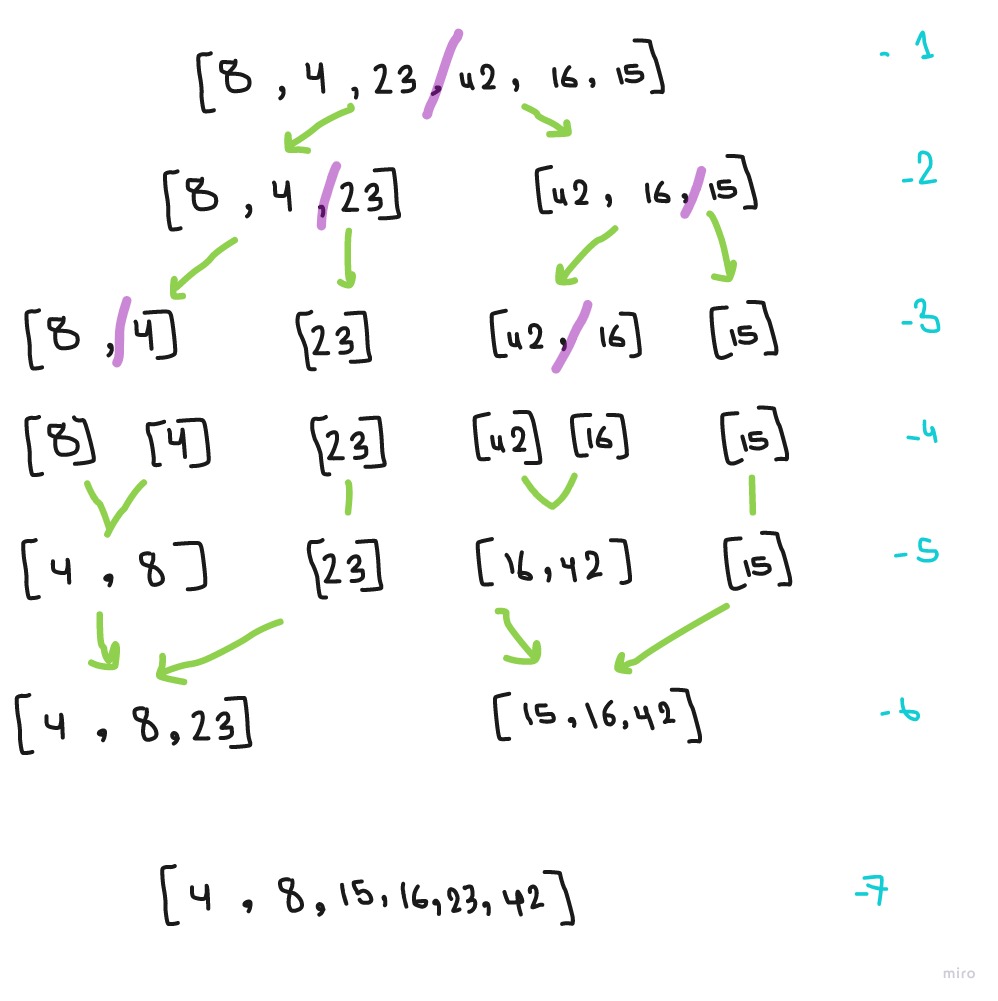 [8 , 4 , 23 , 42 , 16 , 15] - 1
[8 , 4 , 23] [42 , 16 , 15] -2
[8 , 4] [23] [42 , 16] [15] -3
[8] [4] [23] [42] [16] [15] -4
[4 , 8] [23] [16 , 42] [15] -5
[4 , 8 , 23] [15 , 16 , 42] -6
[4 , 8 , 15 , 16 , 23 , 42] -7
miro